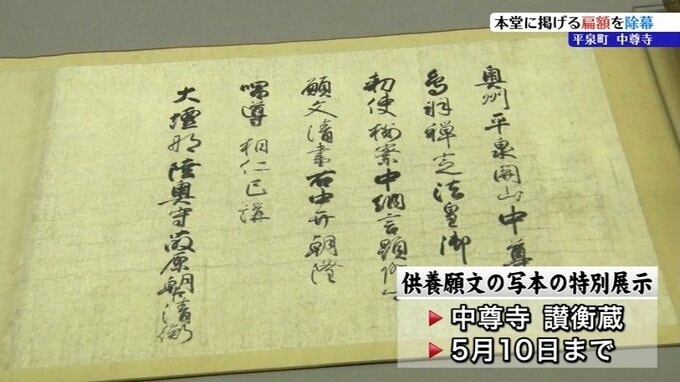 本堂に掲げる扁額を除幕
平泉町 中尊寺
奥州平泉関山中尊
鳥羽禅定法皇御
勅使按察中納言顕隆
願文清書右中弁朝隆
唱導 相仁已講
大壇那陸奥守藤原朝臣清衡
供養願文の写本の特別展示
中尊寺 讃衡蔵
5月10日まで